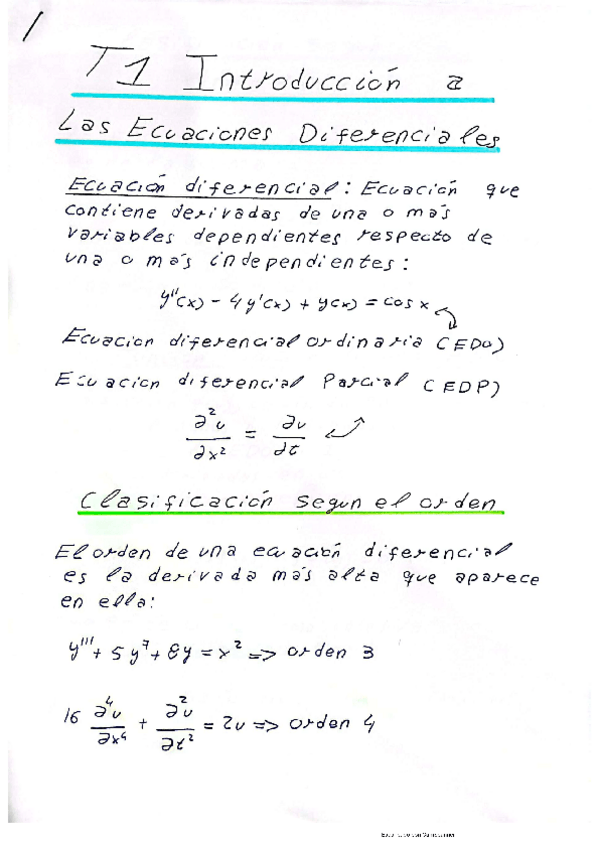 1
T1 Introducción a
Las Ecuaciones Diferenciales
Ecuación diferencial: Ecuación que
contiene derivadas de una o más
variables dependientes respecto de
una o más independientes:
y''(x) - 4y'(x) + y(x) = cos x
Ecuacion diferencial ordinaria (EDO)
Ecuación diferencial Parcial (EDP)
∂²u/∂x² = ∂u/∂t
Clasificación segun el orden
El orden de una ecuación diferencial
es la derivada más alta que aparece
en ella:
y''' + 5y⁷ + 8y = x² => orden 3
16 ∂⁴u/∂x⁴ + ∂²u/∂t² = 2u => orden 4
Escaneado con CamScanner